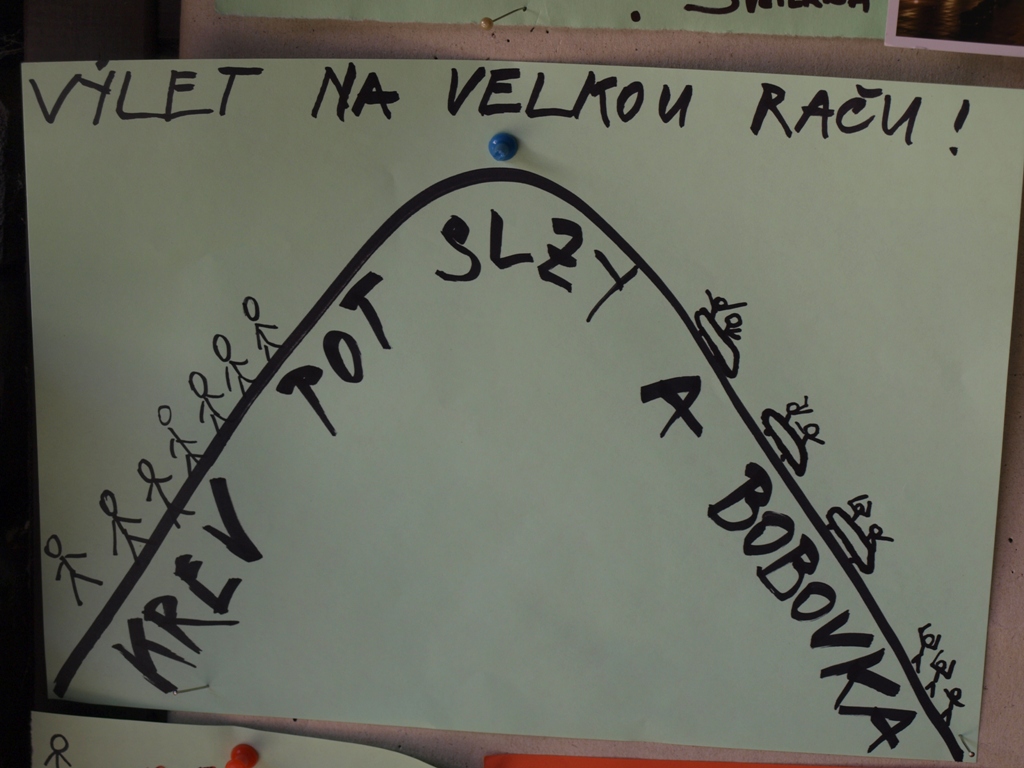 VÝLET NA VELKOU RAČU!
KREV POT SLZY A BOBOVKA